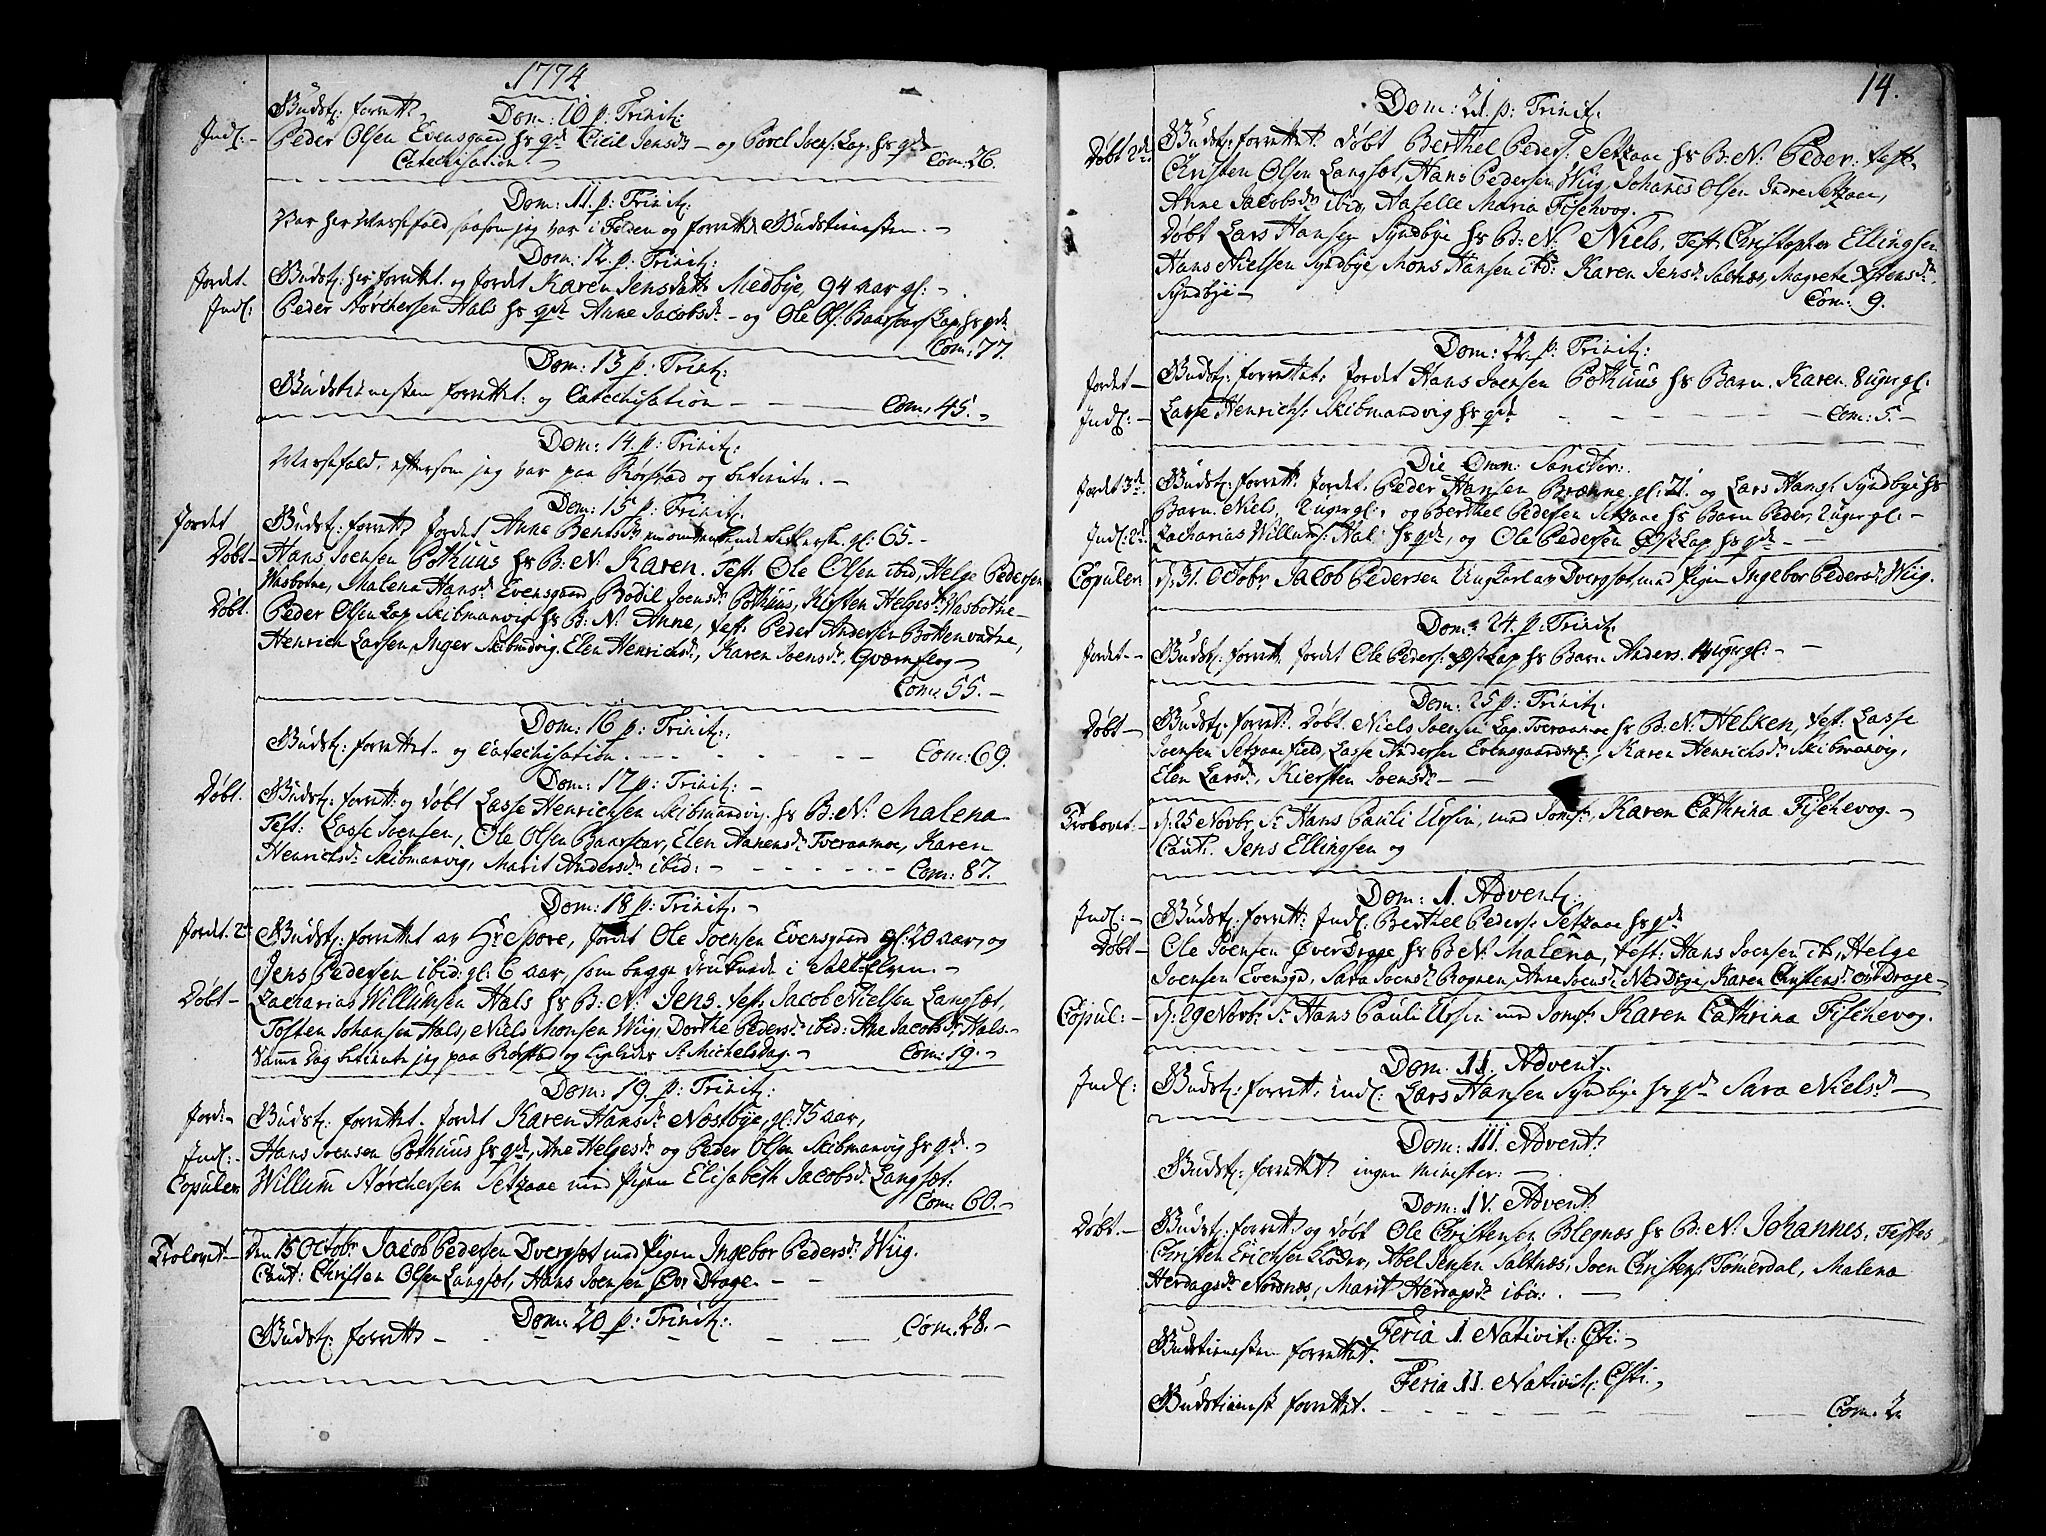 1774
Budstj: forrett.
Dom: 10 p: Trinit:
Indl: - Peder Olsen Evensgaard hs qde Cicil Jensd. - og Povel Joens: Lap. hs qde
Catechisation - Com: 26.
Dom: 11. p: Trinit:
Var her Messefald saasom jeg var i Felden og forrettede Gudstienesten. -
Dom: 12. p: Trinit:
Jordet. Budstj: her forrettet. og jordet Karen Jensdatt. Medbye, 94 aar gl: -
Indl: Peder Norchersen Hals hs qde Anne Jacobsd. - og Ole Ols: Baarscar Lap. hs qde
Com: 77.
Dom: 13 p: Trinit:
Budstienesten forrettet: og Catechisation - Com. 45. -
Dom: 14. p: Trinit:
Messefald, eftersom jeg var paa Rørstad og betiente. -
Dom: 15 p: Trinit:
Jordet Budstj: forrett. jordet Anne Bentsd. en omløbende betlerske. gl: 65. -
Døbt - Hans Joensen Pothuus hs B: N: Karen. Test. Ole Olsen ibid, Helge Pedersen
Wasbotne, Malena Hansd. Evensgaard, Bodil Joensd. Pothuus, Kirsten Helgesd. Wasbotne -
Døbt. Peder Olsen Lap Skibmanvig hs B: N: Anne, test. Peder Andersen Bottenvatne,
Henrich Larsen, Inger Skibmdvig, Elen Henrichsd., Karen Joensd., Qværnflog -
Com: 55. -
Dom: 16 p: Trinit:
Budstj: forrettet - og Catechisation. Com: 69.
Dom: 17 p: Trinit: -
Døbt. Budstj: forrett: og døbt Lasse Henrichsen Skibmandvig. hs B: N: Malena
Test: Lasse Joensen, Ole Olsen Baarscar, Elen Aanensd. Tveraamoe, Karen
Henrichsd. Skibmanvig, Marit Andersd. ibid: - Com: 87.
Dom: 18 p: Trinit. -
Jordet. 2de Budstj: forrettet av Hr Spore, jordet Ole Joensen Evensgaard gl: 20 aar, og
Jens Pedersen ibid: gl: 6 aar, som begge druknede i Salt Elven. -
Døbt - Zacharias Willumsen Hals hs B: N: Jens. test. Jacob Nielsen Langset,
Tosten Johansen Hals, Niels Monsen Wiig, Dorthe Pedersd. ibid: Ane Jacobsd. Hals. -
Samme Dag betiente jeg paa Rørstad og ligeledes St. Michelsdag. - Com: 19. -
Dom: 19 p: Trinit:
Jord: - Budstj: forrettet. jordet Karen Hansd. Næstbye, gl: 75 aar,
Indl: - Hans Joensen Pothuus hs qde, Ane Helgesd. og Peder Olsen Skibmanvig hs qde. -
Copuleret Willum Norchersen Setzaae med pigen Elisabeth Jacobsd. Langset.
Com: 60. -
Trolovet - Den 15 Octobr. Jacob Pedersen Dvergset med pigen Ingebor Pedersd. Wiig.
Caut: Christen Olsen Langset, Hans Joensen Øvr Drage. -
Dom: 20 p: Trinit:
Budstj. forrett - Com. 28. -
14.
Dom: 21. p: Trinit.
Døbt 2de. Budstj: forrettet. Døbt Berthel Peders: Setzaae hs B: N: Peder: test.
Christen Olsen Langset, Hans Pedersen Wiig, Johanes Olsen Indre Setzaae,
Anne Jacobsd. ibid, Aaselle Maria Fischevog.
Døbt Lars Hansen Syndbye hs B: N: Niels, Test. Christopher Ellingsen
Hans Nielsen Syndbye, Mons Hansen ibd: Karen Jensd. Saltnes, Magrete Xstensd.
Syndbye - Com: 9.
Dom: 22. p: Trinit:
Jordet - Budstj: forrettet. jordet Hans Joensen Pothuus hs Barn. Karen. 8 uger gl:
Indl: - Lasse Henrichs: Skibmandvig hs qde Com: 5. -
Die Omn: Sanctor:
Jordet 3de. Budstj: forrett. jordet. Peder Hansen Brænne gl: 21. og Lars Hans: Syndbye hs
Barn. Niels, 2 uger gl:, og Berthel Pedersen Setzaae hs Barn Peder, 2 uger gl: -
Indl: 2de. Zacharias Willums: Hals hs qde, og Ole Pedersen Øst. Lap hs qde - -
Copuleret d. 31. Octobr. Jacob Pedersen Ungkarl av Dvergset, med pigen Ingebor Pedersd. Wiig.
Dom: 24. p: Trinit.
Jordet - Budstj: forrett. jordet Ole Peders: Øst Lap hs Barn. Anders. 4 uger gl: - -
Dom: 25 p: Trinit.
Døbt - Budstj: forrett. Døbt. Niels Joensen Lap. Tveraamoe hs B: N: Helken, test. Lasse
Joensen Setzaae field, Lasse Andersen Evensgaard, Karen Henrichsd. Skibmanvig,
Elen Larsd., Kiersten Joensd. - -
Trolovet - d. 25 Novbr. Sr. Hans Pauli Ursin, med Jomfr. Karen Cathrina Fischevog. -
Caut: Jens Ellingsen og
Dom: 1. Advent.
Indl: - Budstj: forrett: Indl: Berthel Peders: Setzaae hs qde
Døbt - Ole Joensen Øver Drage hs B: N: Malena, test: Hans Joensen ib:, Helge
Joensen Evensgd, Sara Joensd. Rognen, Anne Joensd. Ned Drage, Karen Christensd. Øvr Drage -
Copul: - d: 29 Novbr. Sr. Hans Pauli Ursin med Jomfr. Karen Cathrina Fischevog.
Dom. 11. Advent.
Indl: Budstj: forrett. indl: Lars Hansen Syndbye hs qde Sara Nielsd. -
Dom: III. Advent.
Budstj: forrettet ingen Minister: -
Dom: IV. Advent
Døbt. - Budstj: forrett. og døbt Ole Christensen Blegnæs hs B: N: Johannes, Testes
Christen Erichsen Kloder, Abel Jensen Saltnæs, Joen Christens. Tømerdal, Malena
Herdagsd. Nordnæs, Marit Herdagsd. ibid: . -
Feria 1. Nativit: Csti: -
Budstienesten forrettet.
Feria 11. Nativit: Csti: -
Budstienest forrettet. Com. 2.